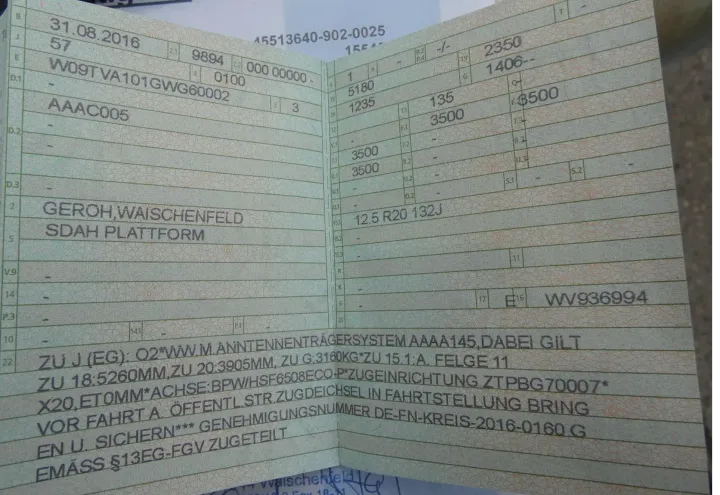 45513640-902-0025
B 31.08.2016 2.1 9894 2.2 000 00000 -
J 57 4 0100
E W09TVA101GWG60002 3 3
D.1 -
AAAC005
D.2 -
-
-
D.3 -
2 GEROH,WAISCHENFELD
5 SDAH PLATTFORM
-
V.9 -
14 -
P.3 -
10 - 14.1 - P.1 -
1 - -/- 2350
5180 G 1406--
1235 135
- 3500 3500
3500 -
3500 -
- - S.1 - S.2 -
12.5 R20 132J
-
-
- 11
-
- 17 E 16 WV936994
-
22 ZU J (EG): O2*WW.M.ANNTENNENTRÄGERSYSTEM AAAA145,DABEI GILT
ZU 18:5260MM,ZU 20:3905MM, ZU G:3160KG*ZU 15.1:A. FELGE 11
X20,ET0MM*ACHSE:BPW/HSF6508ECO-P*ZUGEINRICHTUNG ZTPBG70007*
VOR FAHRT A. ÖFFENTL.STR.ZUGDEICHSEL IN FAHRTSTELLUNG BRING
EN U. SICHERN*** GENEHMIGUNGSNUMMER DE-FN-KREIS-2016-0160 G
EMÄSS §13EG-FGV ZUGETEILT
Waischenfeld